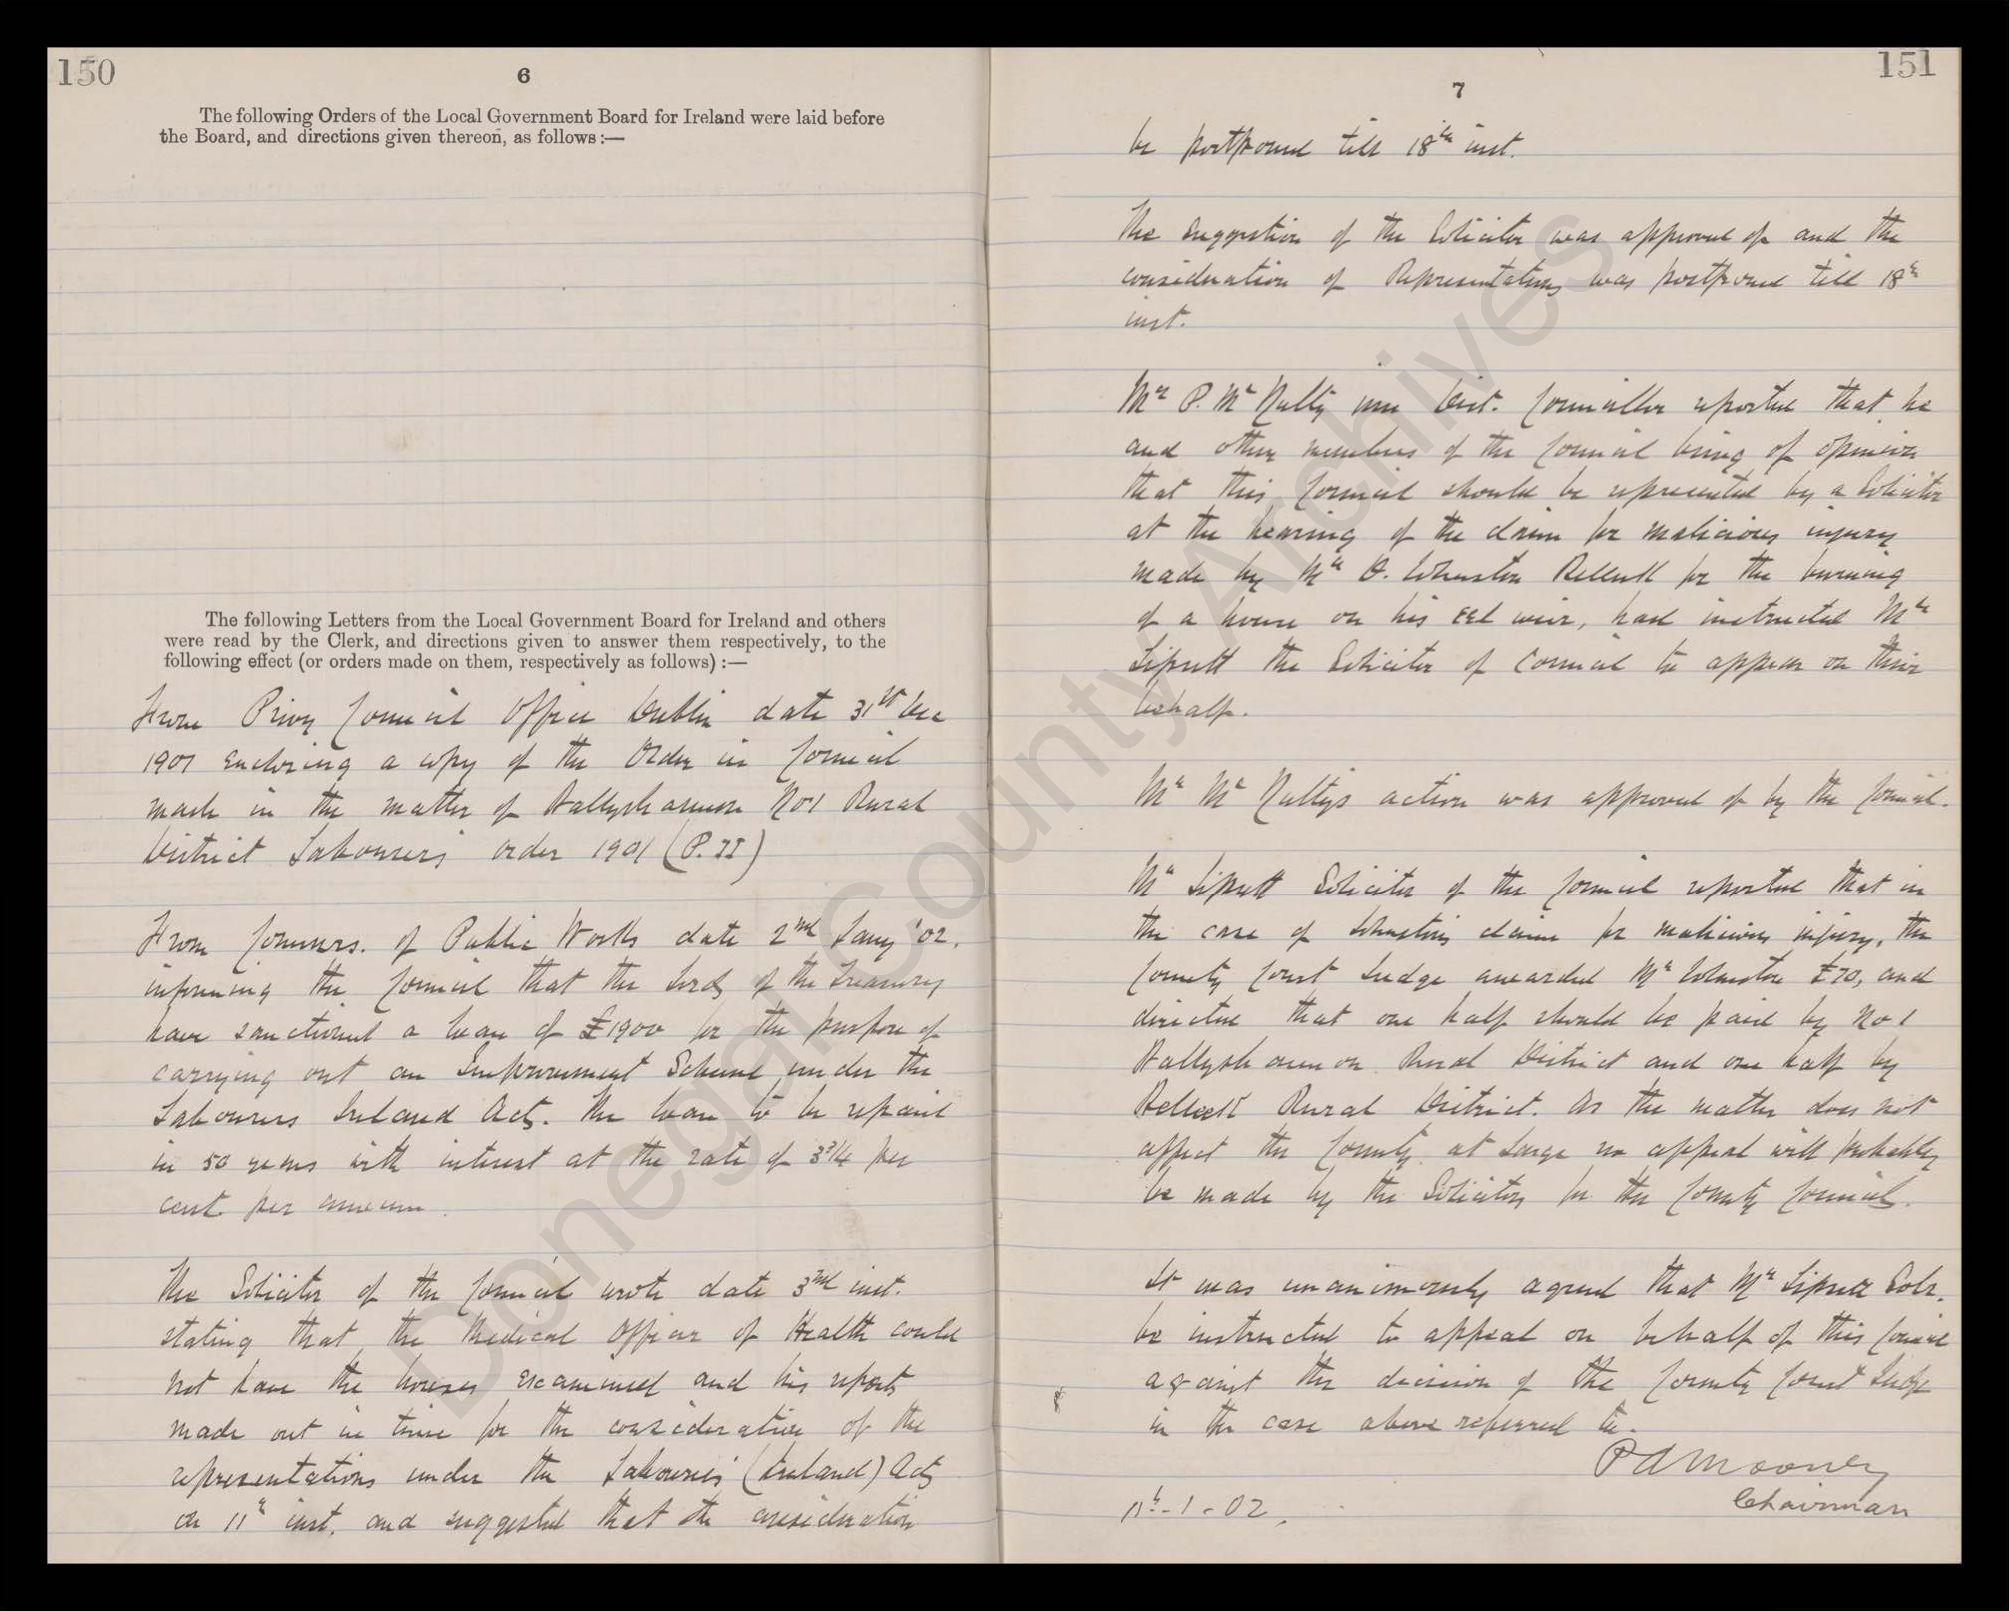 150
6
The following Orders of the Local Government Board for Ireland were laid before
the Board, and directions given thereon, as follows :—
The following Letters from the Local Government Board for Ireland and others
were read by the Clerk, and directions given to answer them respectively, to the
following effect (or orders made on them, respectively as follows) :—
From Privy Council Office Dublin date 31st Dec
1901 enclosing a copy of the Order in Council
made in the matter of Ballyshannon No 1 Rural
District Labourers order 1901 (P. II)
From Commrs. of Public Works date 2nd Jany '02.
informing the Council that the Lords of the Treasury
have sanctioned a loan of £1900 for the purpose of
carrying out an Improvement Scheme under the
Labourers Ireland Acts. The loan to be repaid
in 50 years with interest at the rate of 3¾ per
cent per annum.
The Solicitor of the Council wrote date 3rd inst.
stating that the Medical Officer of Health could
not have the houses examined and his reports
made out in time for the consideration of the
representations under the Labourers (Ireland) Acts
on 11th inst. and suggested that the consideration
151
7
be postponed till 18th inst.
The suggestion of the Solicitor was approved of and the
consideration of Representations was postponed till 18th
inst.
Mr P. McNulty Dist. Councillor reported that he
and other members of the Council being of opinion
that this Council should be represented by a Solicitor
at the hearing of the claim for malicious injury
made by Mr Johnston Belleek for the burning
of a house on his eel weir, had instructed Mr
Lipsett the Solicitor of Council to appear on their
behalf.
Mr McNulty's action was approved of by the Council.
Mr Lipsett Solicitor of the Council reported that in
the case of Johnston's claim for malicious injury, the
County Court Judge awarded Mr Johnston £70, and
directed that one half should be paid by No 1
Ballyshannon Rural District and one half by
Belleek Rural District. As the matter does not
affect the County at Large no appeal will probably
be made by the Solicitors for the County Councils.
It was unanimously agreed that Mr Lipsett Solr.
be instructed to appeal on behalf of this Council
against the decision of the County Court Judge
in the case above referred to.
P A Mooney
Chairman
11th-1-02.
Donegal County Archives